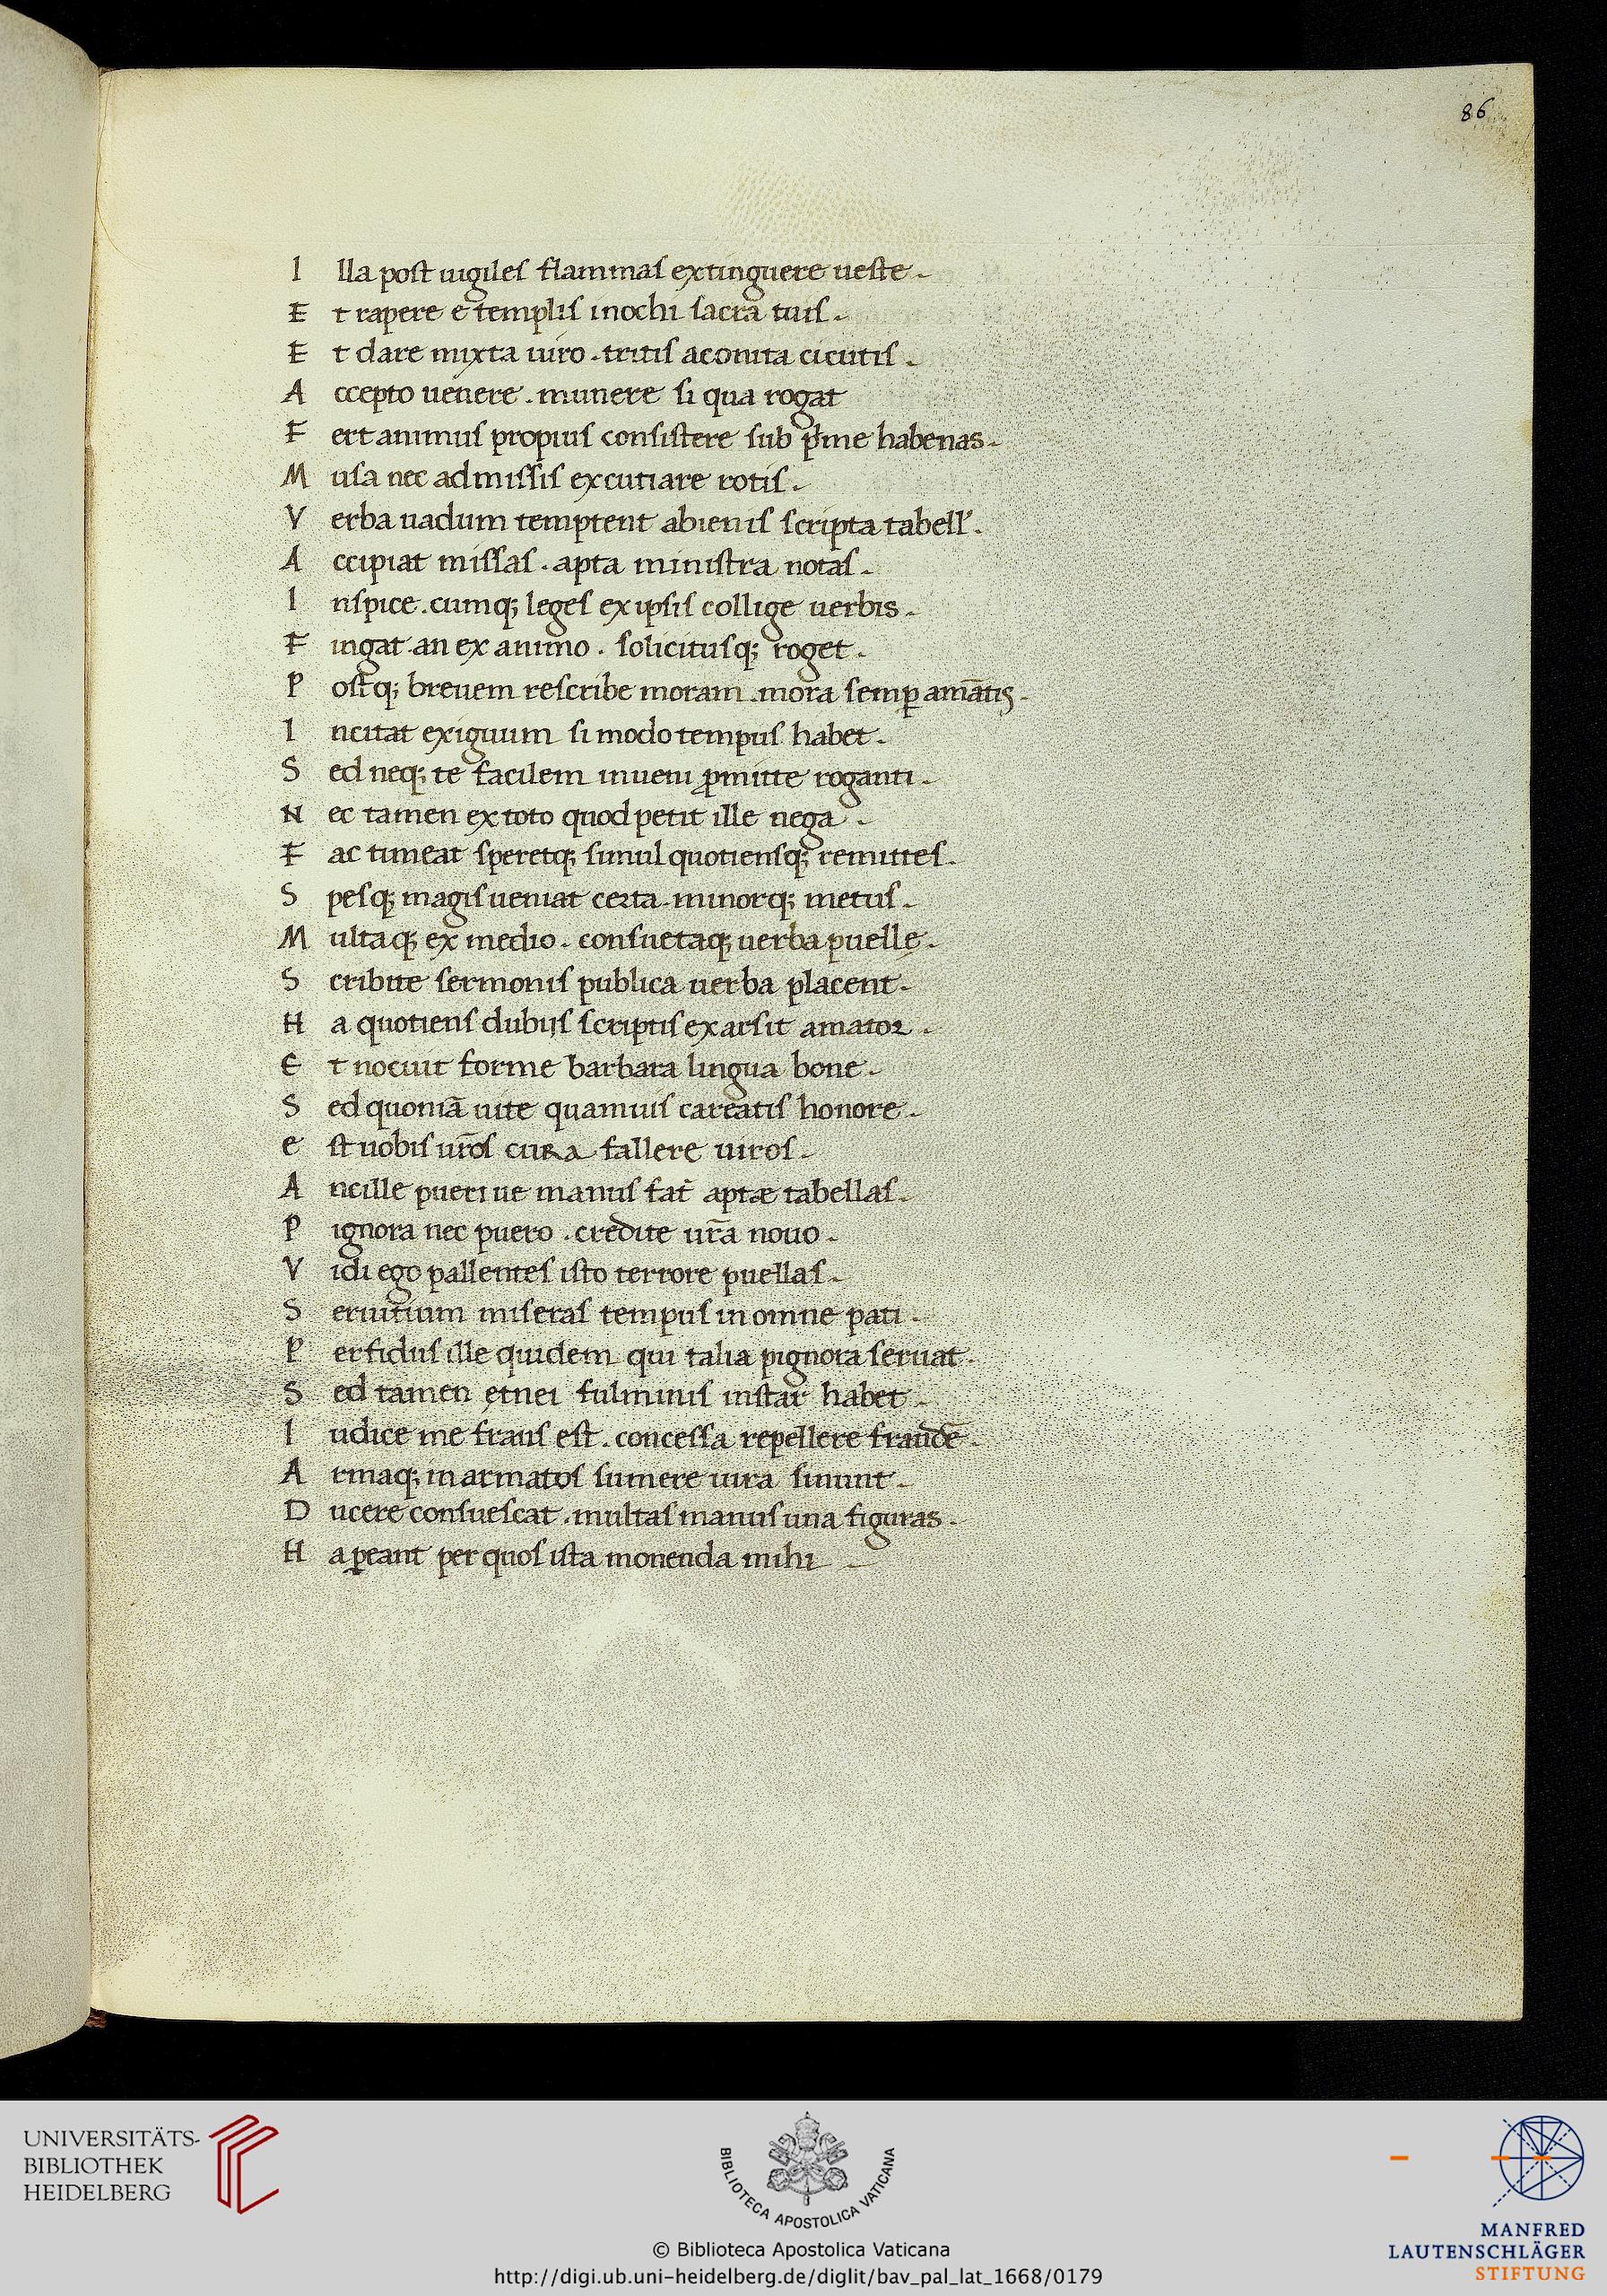 86
I lla post uigiles flammas extinguere ueste.
E t rapere e templis inochi sacra tuis.
E t dare mixta uiro. tritis aconita cicutis.
A ccepto uenere. munere si qua rogat
F ert animus propius consistere sub p̄me habenas.
M usa nec admissis excutiare rotis.
V erba uadum temptent abienis scripta tabell'.
A ccipiat missas. apta ministra notas.
I nspice. cumq; leges ex ipsis collige uerbis.
F ingat. an ex animo. solicitusq; roget.
P ostq; breuem rescribe moram. mora semꝑ amātis.
I ncitat exiguum si modo tempus habet.
S ed neq; te facilem inueni ꝓmitte roganti.
N ec tamen ex toto quod petit ille nega.
F ac timeat speretq; simul quotiensq; remittes.
S pesq; magis ueniat certa. minorq; metus.
M ultaq; ex medio. consuetaq; uerba puellę.
S cribite sermonis publica uerba placent.
H a quotiens dubijs scriptis exarsit amator.
E t nocuit forme barbara lingua bone.
S ed quoniā uite quamuis careatis honore.
e st uobis ur̄os cura fallere uiros.
A ncille pueriue manus fat̄ aptæ tabellas.
P ignora nec puero. credite ur̄a nouo.
V idi ego pallentes isto terrore puellas.
S eruitium miseras tempus in omne pati.
P erfidus ille quidem qui talia pignora seruat.
S ed tamen ętnei fulminis instar habet.
I udice me fraus est. concessa repellere fraudē.
A rmaq; in armatos sumere iura sinunt.
D ucere consuescat. multas manus una figuras.
H a ꝑeant per quos ista monenda mihi
UNIVERSITÄTS-
BIBLIOTHEK
HEIDELBERG
BIBLIOTECA APOSTOLICA VATICANA
© Biblioteca Apostolica Vaticana
http://digi.ub.uni-heidelberg.de/diglit/bav_pal_lat_1668/0179
MANFRED
LAUTENSCHLÄGER
STIFTUNG